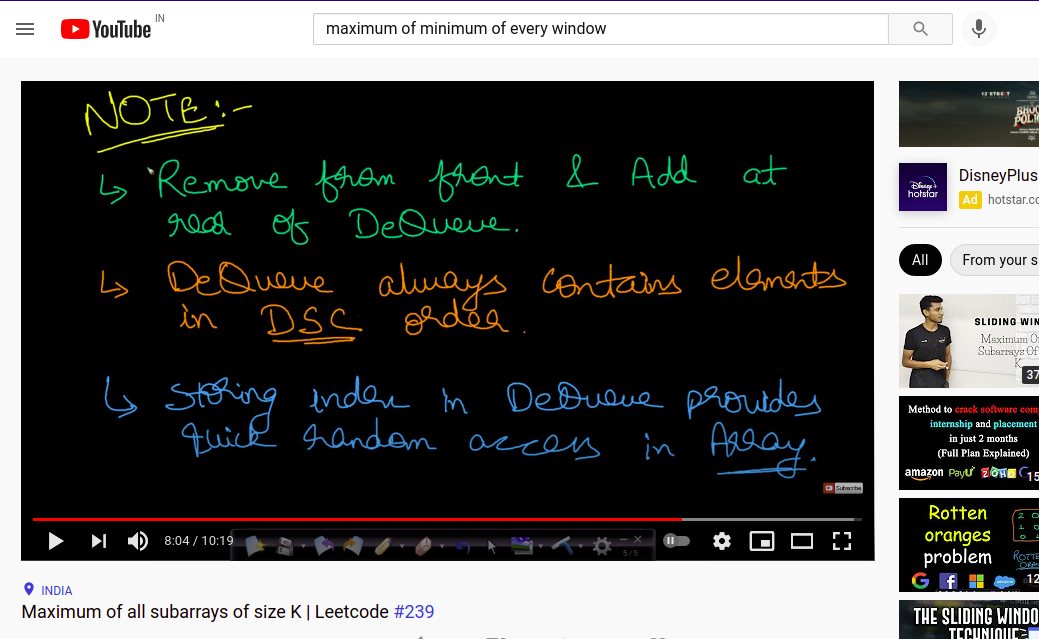 YouTube IN
maximum of minimum of every window
NOTE:-
↳ Remove from front & Add at
rear of DeQueue.
↳ DeQueue always contains elements
in DSC order.
↳ Storing index in DeQueue provides
quick random access in Array.
Subscribe
8:04 / 10:19
5/5
INDIA
Maximum of all subarrays of size K | Leetcode #239
12 STRE T
DisneyPlus
Disney+
hotstar
Ad hotstar.co
All
From your s
SLIDING WIN
Maximum O
Subarrays Of
K
37
Method to crack software com
internship and placement
in just 2 months
(Full Plan Explained)
amazon PayU ZOHO G
15
Rotten
oranges
problem
12
THE SLIDING WINDO
TECHNIQUE